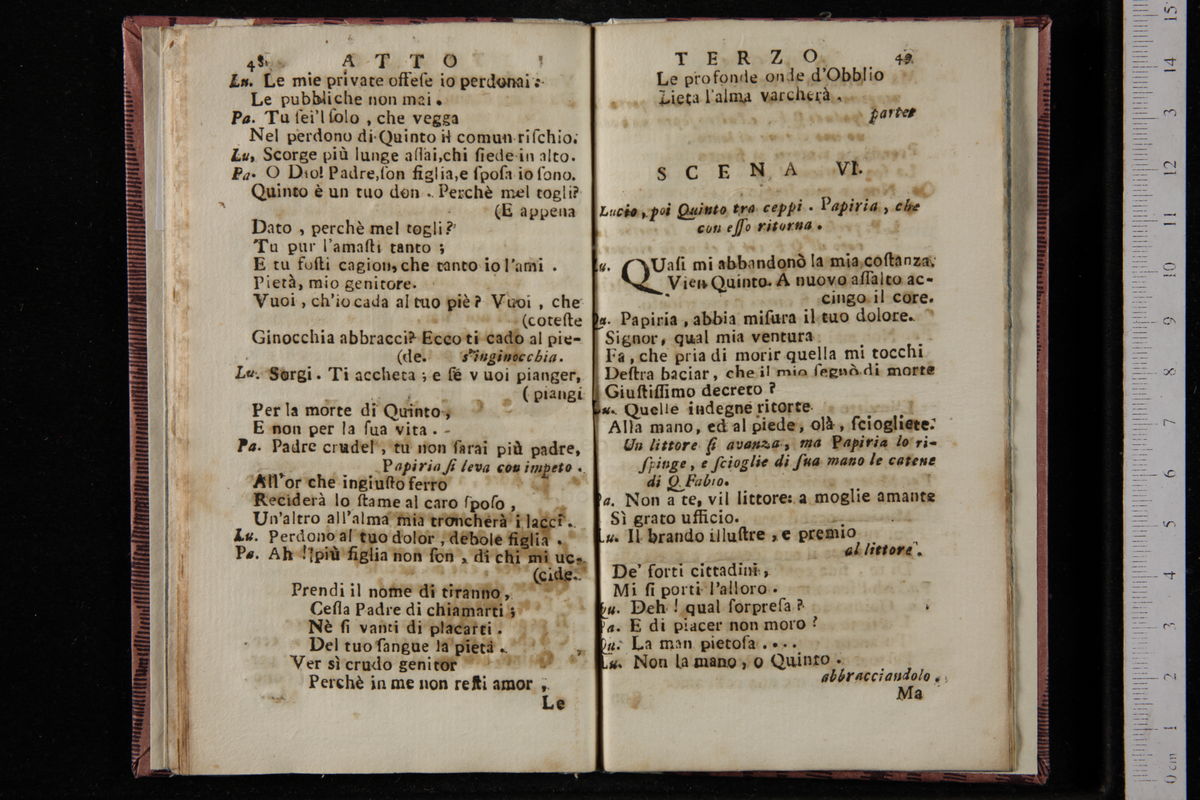 48 ATTO
Lu. Le mie private offeſe io perdonai:
Le pubbliche non mai.
Pa. Tu ſei'l ſolo, che vegga
Nel perdono di Quinto il comun riſchio.
Lu. Scorge più lunge aſſai, chi ſiede in alto.
Pa. O Dio! Padre, ſon figlia, e ſpoſa io ſono.
Quinto è un tuo don. Perchè mel togli?
(E appena
Dato, perchè mel togli?
Tu pur l'amaſti tanto;
E tu foſti cagion, che tanto io l'ami.
Pietà, mio genitore.
Vuoi, ch'io cada al tuo piè? Vuoi, che
(coteſte
Ginocchia abbracci? Ecco ti cado al pie-
(de. s'inginocchia.
Lu. Sorgi. Ti accheta; e ſe vuoi pianger,
(piangi
Per la morte di Quinto,
E non per la ſua vita.
Pa. Padre crudel, tu non ſarai più padre,
Papiria ſi leva con impeto.
All'or che ingiuſto ferro
Reciderà lo ſtame al caro ſpoſo,
Un'altro all'alma mia troncherà i lacci.
Lu. Perdono al tuo dolor, debole figlia.
Pa. Ah! più figlia non ſon, di chi mi uc-
(cide.
Prendi il nome di tiranno,
Ceſſa Padre di chiamarti;
Nè ſi vanti di placarti
Del tuo ſangue la pietà.
Ver sì crudo genitor
Perchè in me non reſti amor,
Le
TERZO 49
Le profonde onde d'Obblio
Lieta l'alma varcherà.
parte
SCENA VI.
Lucio, poi Quinto tra ceppi. Papiria, che
con eſſo ritorna.
Lu. QUaſi mi abbandonò la mia coſtanza.
Vien Quinto. A nuovo aſſalto ac-
cingo il core.
Qu. Papiria, abbia miſura il tuo dolore.
Signor, qual mia ventura
Fa, che pria di morir quella mi tocchi
Deſtra baciar, che il mio ſegnò di morte
Giuſtiſſimo decreto?
Lu. Quelle indegne ritorte
Alla mano, ed al piede, olà, ſciogliete.
Un littore ſi avanza, ma Papiria lo ri-
ſpinge, e ſcioglie di ſua mano le catene
di Q. Fabio.
Pa. Non a te, vil littore: a moglie amante
Sì grato ufficio.
Lu. Il brando illuſtre, e premio
al littore.
De' forti cittadini,
Mi ſi porti l'alloro.
Qu. Deh! qual ſorpreſa?
Pa. E di piacer non moro?
Qu. La man pietoſa....
Lu. Non la mano, o Quinto.
abbracciandolo.
Ma